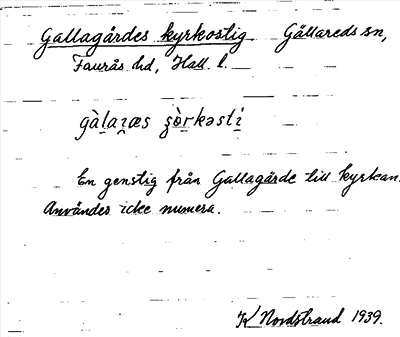 Gallagårdes kyrkostig Gällareds sn,
Faurås hd, Hall. l.
En genstig från Gallagärde till kyrkan.
Användes icke numera.
K Nordstrand 1939.